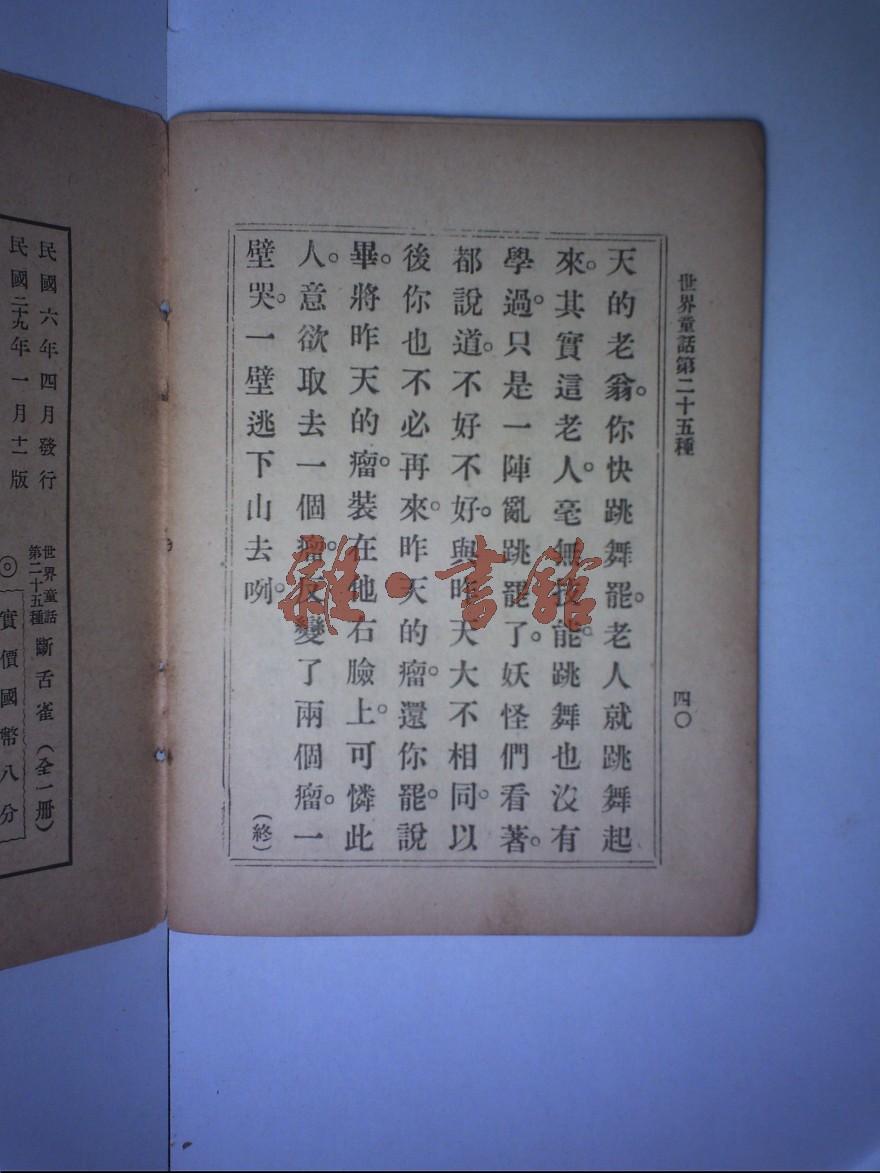 世界童話第二十五種
四〇
天的老翁。你快跳舞罷。老人就跳舞起
來。其實這老人。毫無技能。跳舞也沒有
學過。只是一陣亂跳罷了。妖怪們看著。
都說道。不好不好。與昨天大不相同。以
後你也不必再來。昨天的瘤。還你罷。說
畢。將昨天的瘤。裝在他右臉上。可憐此
人。意欲取去一個瘤。反變了兩個瘤。一
壁哭。一壁逃下山去咧。
(終)
雜·書館
民國六年四月發行
民國二十九年一月十一版
世界童話
第二十五種
斷舌雀(全一冊)
◎實價國幣八分